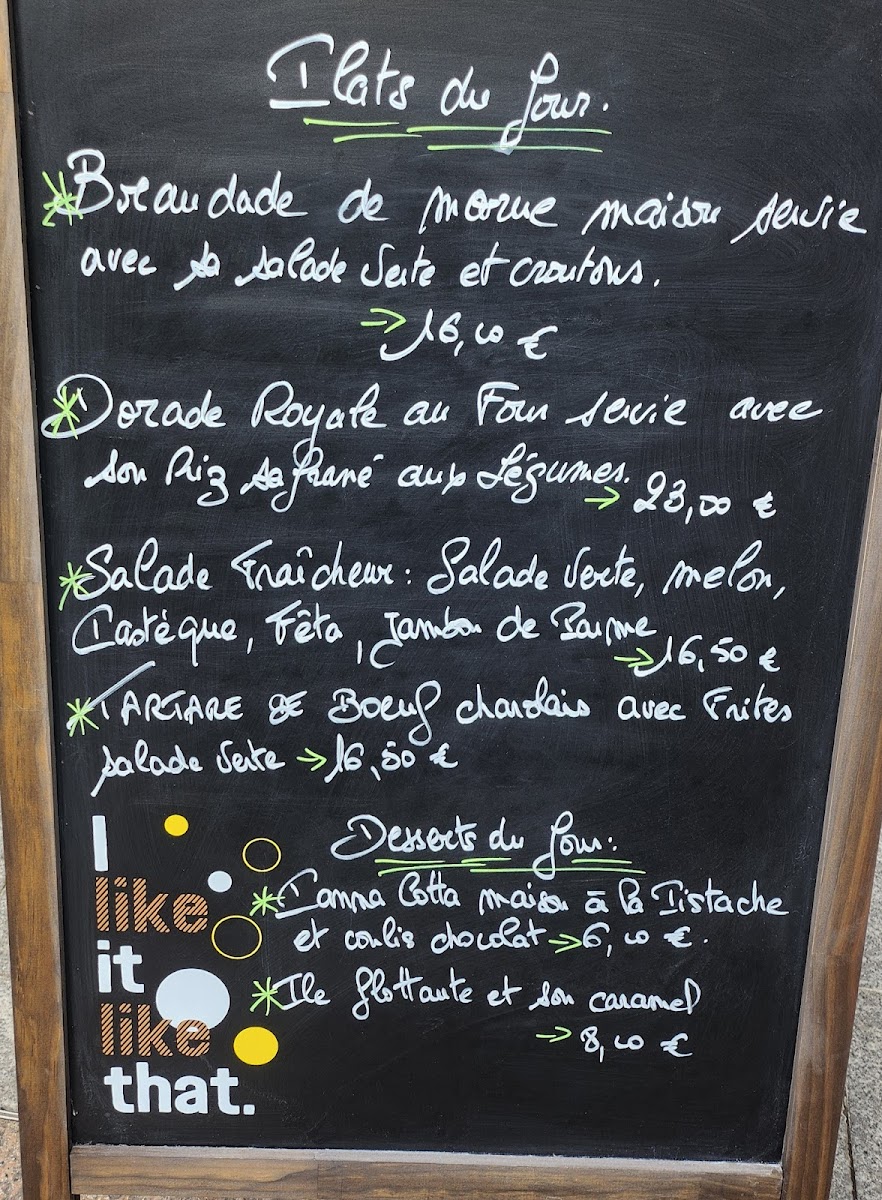 Plats du Jour.
Brandade de morue maison servie
avec sa salade Verte et croutons.
→ 16,00 €
Dorade Royale au Four servie avec
son Riz safrané aux Légumes.
→ 23,00 €
Salade Fraîcheur : Salade Verte, melon,
Pastèque, Fêta, Jambon de Parme
→ 16,50 €
TARTARE DE Boeuf charolais avec Frites
salade Verte → 16,50 €
Desserts du Jour :
Panna Cotta maison à la Pistache
et coulis chocolat → 6,00 €.
Ile flottante et son caramel
→ 8,00 €
I
like
it
like
that.